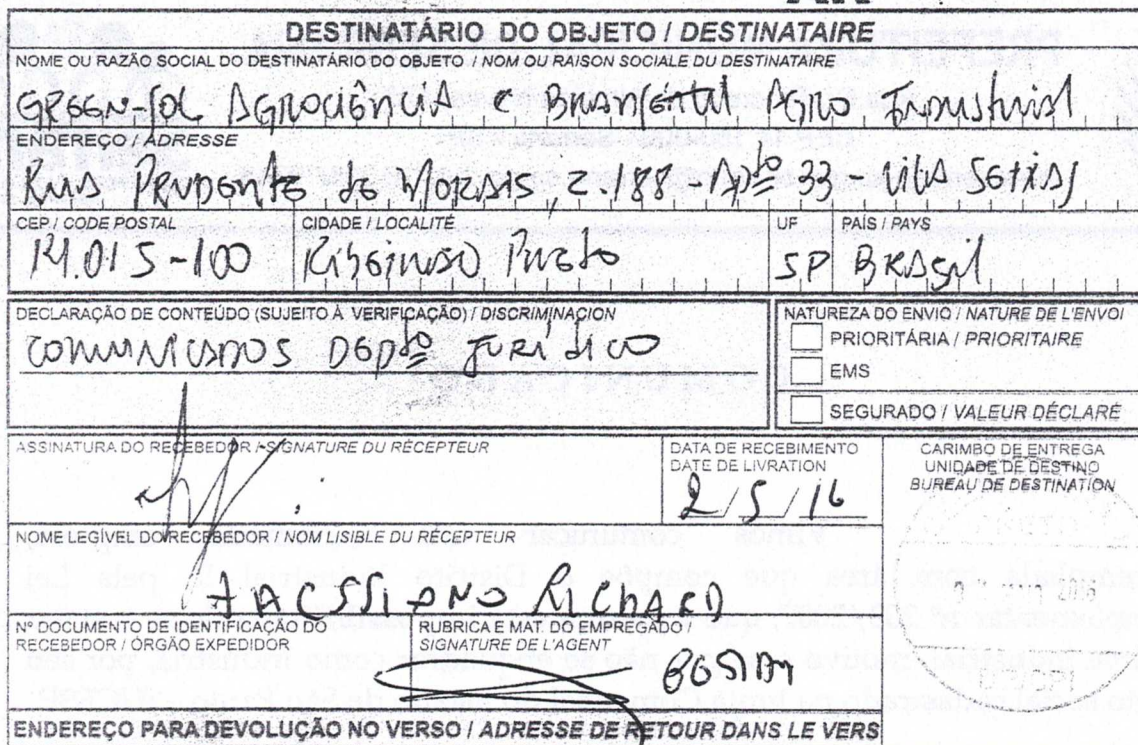 DESTINATÁRIO DO OBJETO / DESTINATAIRE
NOME OU RAZÃO SOCIAL DO DESTINATÁRIO DO OBJETO / NOM OU RAISON SOCIALE DU DESTINATAIRE
Agro Industrial
ENDEREÇO / ADRESSE
Rua Prudente de Morais, 2.188 - Apto 33 Vila Seixas
CEP / CODE POSTAL CIDADE / LOCALITÉ UF PAÍS / PAYS
14.015-100 Ribeirão Preto SP Brasil
DECLARAÇÃO DE CONTEÚDO (SUJEITO À VERIFICAÇÃO) / DISCRIMINACION
Comunicados Depto Jurídico
NATUREZA DO ENVIO / NATURE DE L'ENVOI
PRIORITÁRIA / PRIORITAIRE
EMS
SEGURADO / VALEUR DÉCLARÉ
ASSINATURA DO RECEBEDOR / SIGNATURE DU RÉCEPTEUR
DATA DE RECEBIMENTO
DATE DE LIVRATION
2/5/16
CARIMBO DE ENTREGA
UNIDADE DE DESTINO
BUREAU DE DESTINATION
NOME LEGÍVEL DO RECEBEDOR / NOM LISIBLE DU RÉCEPTEUR
RICHARD
Nº DOCUMENTO DE IDENTIFICAÇÃO DO
RECEBEDOR / ÓRGÃO EXPEDIDOR
RUBRICA E MAT. DO EMPREGADO /
SIGNATURE DE L'AGENT
ENDEREÇO PARA DEVOLUÇÃO NO VERSO / ADRESSE DE RETOUR DANS LE VERS